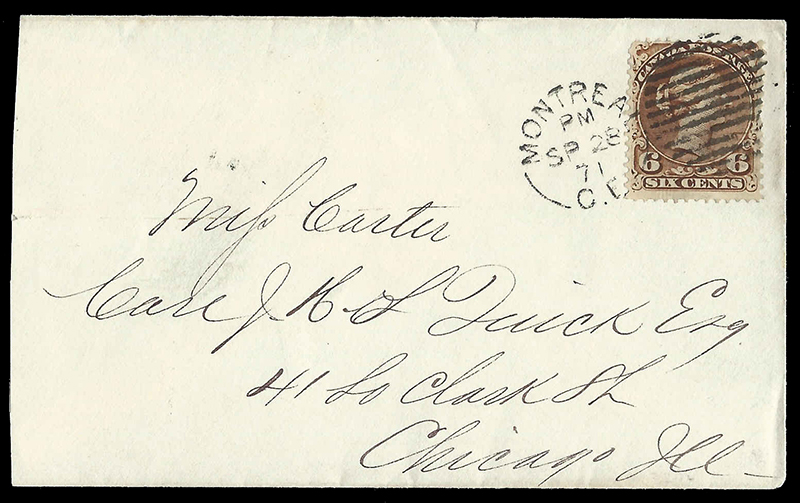 CANADA POSTAGE
MONTREAL
PM
SP 28
71
C.E
6 6
SIX CENTS
Miss Carter
Care J. H. S. Quick Esq.
41 So Clark St.
Chicago Ill